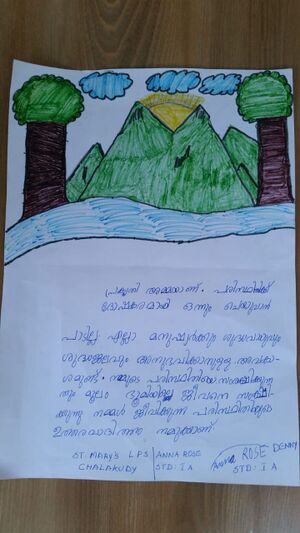 പ്രകൃതി അമ്മയാണ്. പരിസ്ഥിതിക്ക്
ദോഷകരമായി ഒന്നും ചെയ്യുവാൻ
പാടില്ല എല്ലാ മനുഷ്യർക്കും ശുദ്ധവായുവും
ശുദ്ധജലവും അനുഭവിക്കാനുള്ള അവകാ-
ശമുണ്ട്. നമ്മുടെ പരിസ്ഥിതിയെ സംരക്ഷിക്കുന്ന
തു മൂലം ഭൂമിയിലെ ജീവനെ സംരക്ഷി-
ക്കുന്നു നമ്മൾ ജീവിക്കുന്ന പരിസ്ഥിതിയുടെ
ഉത്തരവാദിത്തം നമുക്കാണ്.
ST. MARY'S L.P.S
CHALAKUDY
ANNA ROSE
STD: I A
ANNA ROSE DENNY
STD: I A